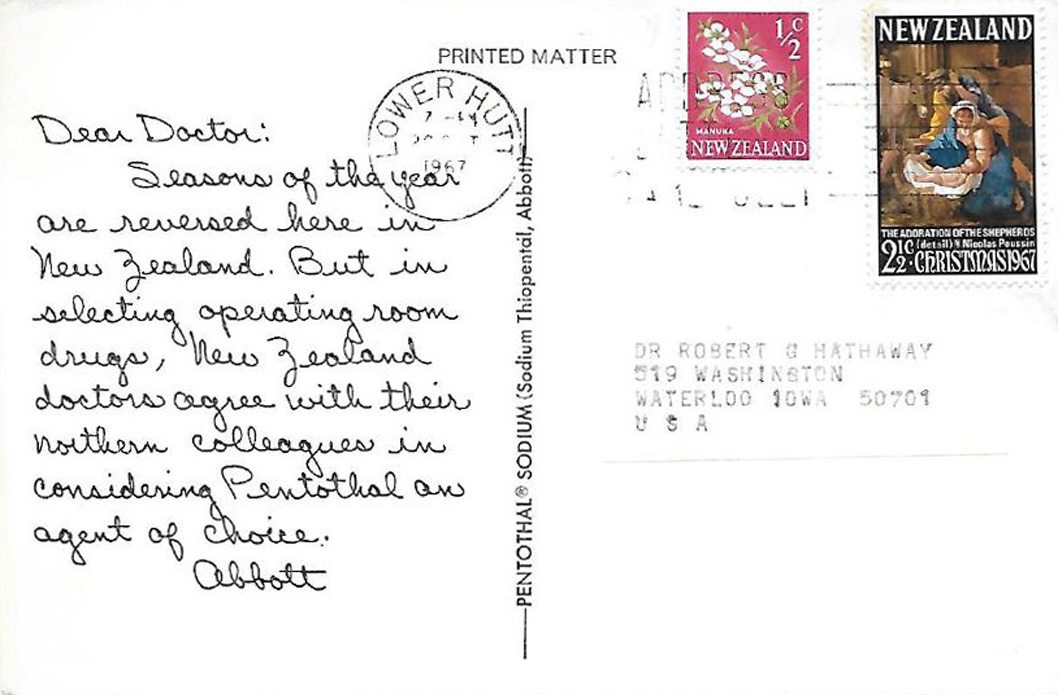 PRINTED MATTER
LOWER HUTT
1967
1/2c
MANUKA
NEW ZEALAND
NEW ZEALAND
THE ADORATION OF THE SHEPHERDS
(detail) Nicolas Poussin
2½c CHRISTMAS 1967
ADDRESS
Dear Doctor:
Seasons of the year
are reversed here in
New Zealand. But in
selecting operating room
drugs, New Zealand
doctors agree with their
northern colleagues in
considering Pentothal an
agent of choice.
Abbott
PENTOTHAL® SODIUM (Sodium Thiopental, Abbott)
DR ROBERT G HATHAWAY
519 WASHINGTON
WATERLOO IOWA 50701
U S A